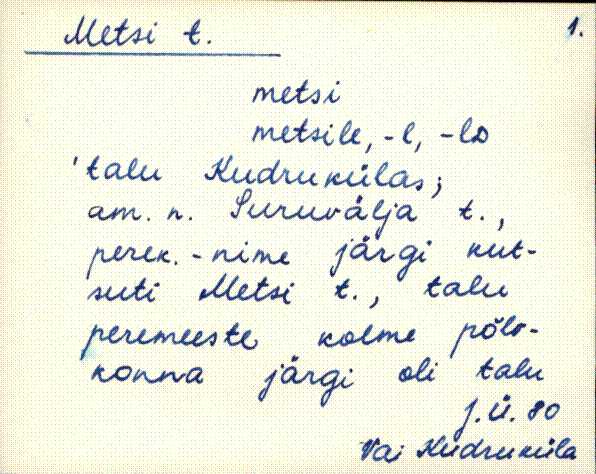 Metsi t. 1.
metsi
metsile, -l, -lD
'talu Kudrukülas;
am. n. Suruvälja t.,
perek.-nime järgi kut-
suti Metsi t., talu
peremeeste kolme põlv-
konna järgi oli talu
J.Ü. 80
Vai Kudruküla